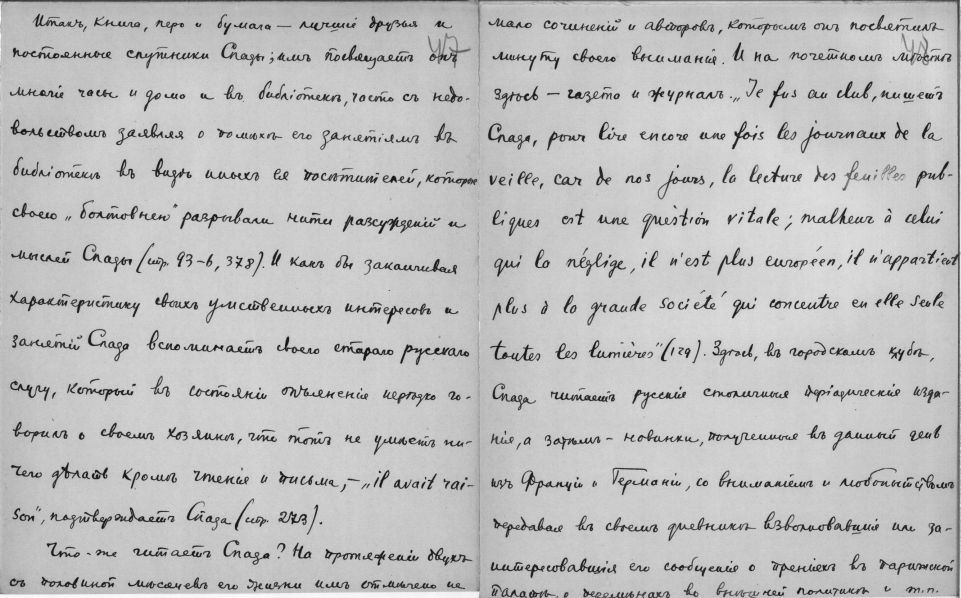 Итакъ, книга, перо и бумага — лучшіе друзья и
постоянные спутники Спады; имъ посвящаетъ онъ
47
многіе часы и дома и въ библіотекѣ, часто съ недо-
вольствомъ заявляя о помѣхѣ его занятіямъ въ
библіотекѣ въ видѣ иныхъ ея посѣтителей, которые
своею „болтовней" разрывали нити разсужденій и
мыслей Спады (стр. 93-6, 378). И какъ бы заканчивая
характеристику своихъ умственныхъ интересовъ и
занятій Спада вспоминаетъ своего стараго русскаго
слугу, который въ состояніи опьяненія нерѣдко го-
ворилъ о своемъ хозяинѣ, что тотъ не умѣетъ ни-
чего дѣлать кромѣ чтенія и письма, — „il avait rai-
son", подтверждаетъ Спада (стр. 273).
Что-же читаетъ Спада? На протяженіи двухъ
съ половиной мѣсяцевъ его жизни имъ отмѣчено не
мало сочиненій и авторовъ, которымъ онъ посвятилъ
минуту своего вниманія. И на почетномъ мѣстѣ
здѣсь — газета и журналъ. „Je fus au club, пишетъ
Спада, pour lire encore une fois les journaux de la
veille, car de nos jours, la lecture des feuilles pub-
liques est une quèstion vitale; malheur à celui
qui la néglige, il n'est plus européen, il n'appartient
plus à la grande société qui concentre en elle seule
toutes les lumières" (129). Здѣсь, въ городскомъ клубѣ,
Спада читаетъ русскія столичныя періодическія изда-
нія, а затѣмъ — новинки, полученныя въ данный день
изъ Франціи и Германіи, со вниманіемъ и любопытствомъ
передавая въ своемъ дневникѣ взволновавшія или за-
интересовавшія его сообщенія о преніяхъ въ парижской
Палатѣ, о перемѣнахъ во внѣшней политикѣ и т.п.